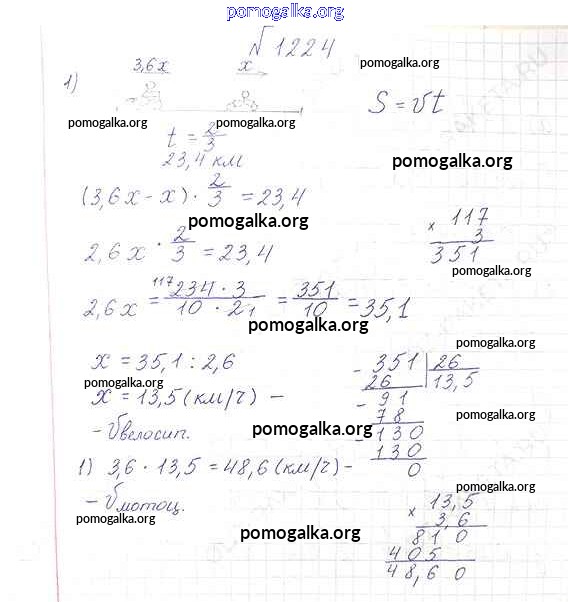 pomogalka.org
N 1224
pomogalka.org
3,6x x
1)
S = vt
pomogalka.org pomogalka.org
t = 2/3
23,4 км
pomogalka.org
(3,6x - x) · 2/3 = 23,4
pomogalka.org
2,6x · 2/3 = 23,4
× 117
3
351
pomogalka.org
2,6x = 117 234 · 3 / 10 · 2 1 = 351/10 = 35,1
pomogalka.org
pomogalka.org
x = 35,1 : 2,6
- 351 | 26
26 13,5
pomogalka.org
x = 13,5 (км/ч) -
- 91
78
pomogalka.org
- Vвелосип.
pomogalka.org
- 130
130
0
1) 3,6 · 13,5 = 48,6 (км/ч) -
pomogalka.org
- Vмотоц.
pomogalka.org
× 13,5
3,6
810
405
48,60
pomogalka.org